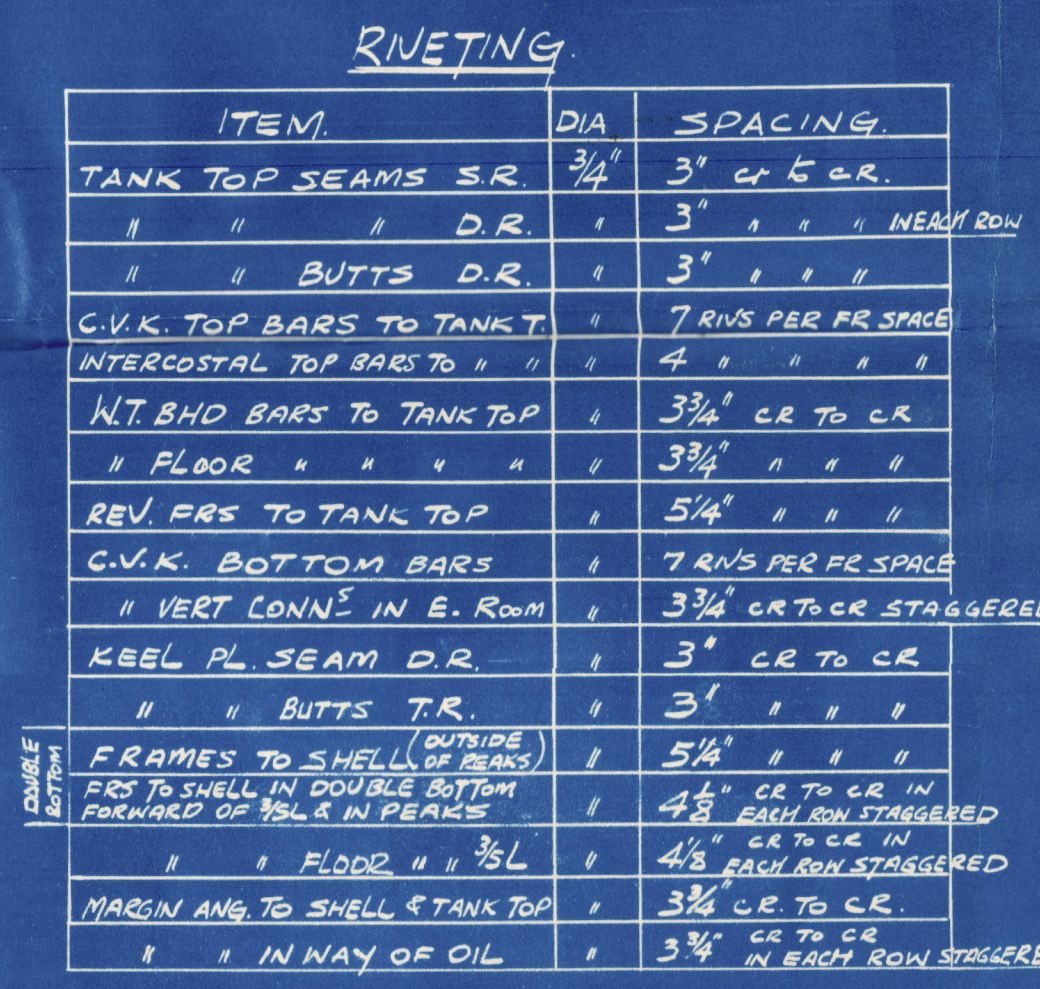 RIVETING.
ITEM. DIA SPACING.
TANK TOP SEAMS S.R. 3/4" 3" cr to CR.
" " " D.R. " 3" " " " IN EACH ROW
" " BUTTS D.R. " 3" " " "
C.V.K. TOP BARS TO TANK T. " 7 RIVS PER FR SPACE
INTERCOSTAL TOP BARS TO " " " 4 " " " "
W.T. BHD BARS TO TANK TOP " 3 3/4" CR TO CR
" FLOOR " " " " " 3 3/4" " " "
REV. FRS TO TANK TOP " 5 1/4" " " "
C.V.K. BOTTOM BARS " 7 RIVS PER FR SPACE
" VERT CONNS IN E. ROOM " 3 3/4" CR TO CR STAGGERED
KEEL PL. SEAM D.R. " 3" CR TO CR
" " BUTTS T.R. " 3" " " "
DOUBLE
BOTTOM
FRAMES TO SHELL (OUTSIDE OF PEAKS) " 5 1/4" " " "
FRS TO SHELL IN DOUBLE BOTTOM
FORWARD OF 3/5L & IN PEAKS " 4 1/8" CR TO CR IN
EACH ROW STAGGERED
" " FLOOR " " 3/5L " 4 1/8" CR TO CR IN
EACH ROW STAGGERED
MARGIN ANG. TO SHELL & TANK TOP " 3 3/4" CR. TO CR.
" " IN WAY OF OIL " 3 3/4" CR TO CR
IN EACH ROW STAGGERE